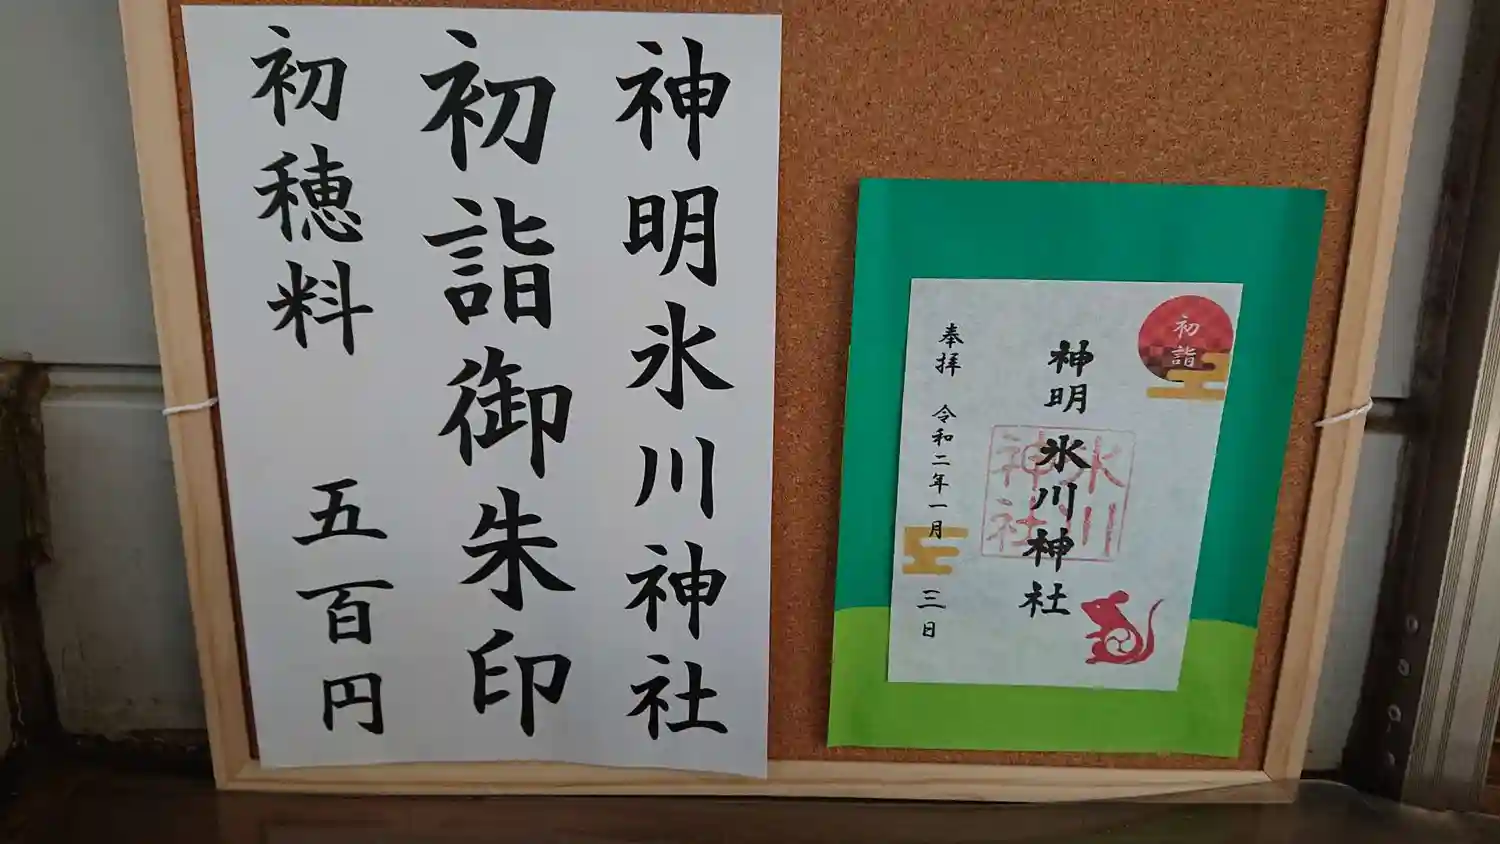 神明氷川神社
初詣御朱印
初穂料 五百円
初詣
神明氷川神社
氷川神社
奉拝 令和二年一月三日